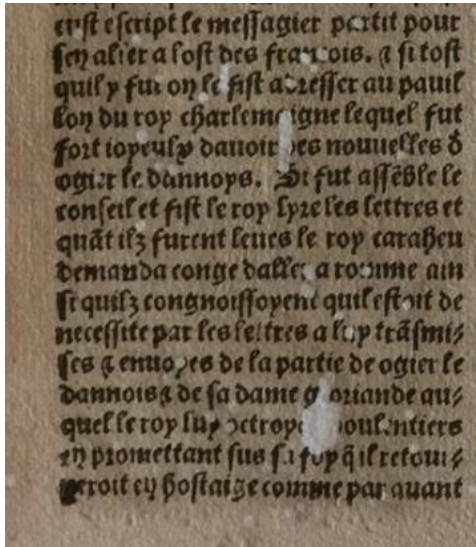 eust escript le messagier partit pour
sen aller a lost des francois. ⁊ si tost
quil y fut on le fist adresser au pauil
lon du roy charlemaigne lequel fut
fort ioyeulx dauoir des nouuelles d̄
ogier le dannoys. Si fut assēble le
conseil et fist le roy lyre les lettres et
quāt ilz furent leues le roy caraheu
demanda conge daller a romme ain
si quilz congnoissoyent quil estoit de
necessite par les lettres a luy trāsmi⸗
ses ⁊ enuoyes de la partie de ogier le
dannois ⁊ de sa dame gloriande au⸗
quel le roy luy octroya voulentiers
en promettant sus sa foy q̄ il retour⸗
neroit en hostaige comme par auant